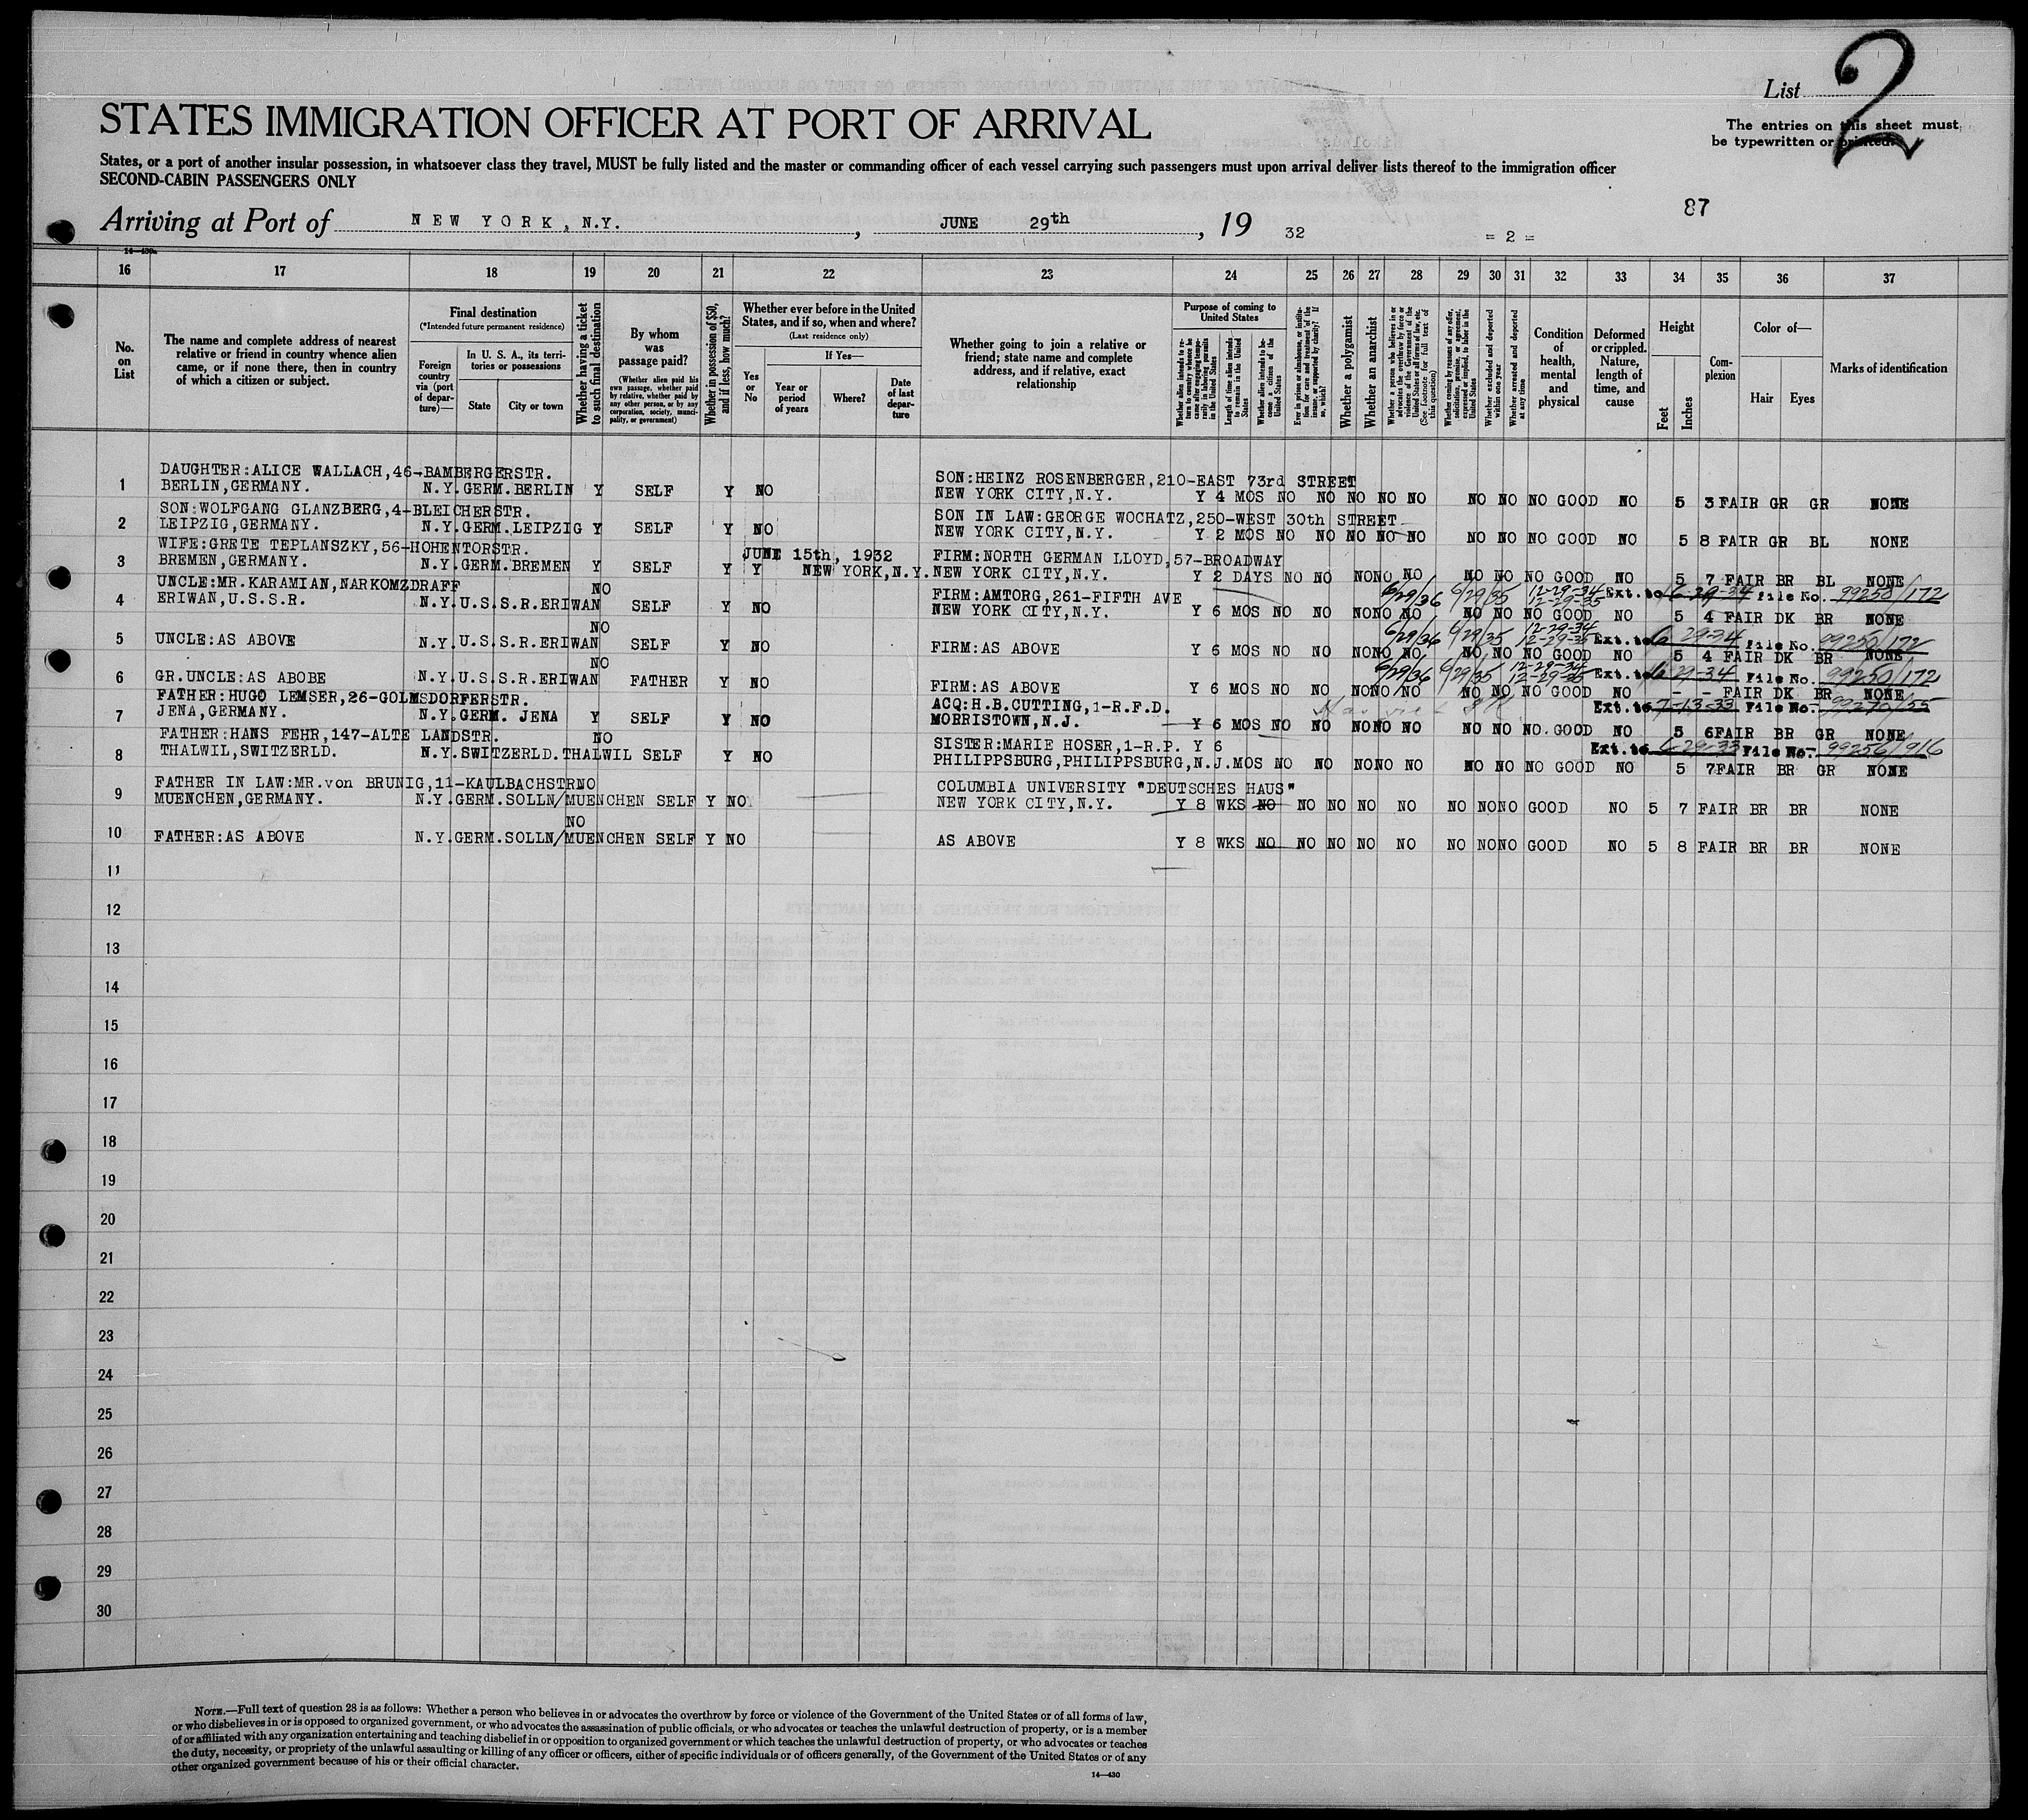 List 2
STATES IMMIGRATION OFFICER AT PORT OF ARRIVAL
The entries on this sheet must
be typewritten or printed.
States, or a port of another insular possession, in whatsoever class they travel, MUST be fully listed and the master or commanding officer of each vessel carrying such passengers must upon arrival deliver lists thereof to the immigration officer
SECOND-CABIN PASSENGERS ONLY
87
Arriving at Port of NEW YORK, N.Y., JUNE 29th, 19 32 = 2 =
16 17 18 19 20 21 22 23 24 25 26 27 28 29 30 31 32 33 34 35 36 37
No. on List
The name and complete address of nearest relative or friend in country whence alien came, or if none there, then in country of which a citizen or subject.
Final destination
(*Intended future permanent residence)
Foreign country via (port of departure)—
In U. S. A., its territories or possessions
State
City or town
Whether having a ticket to such final destination
By whom was passage paid?
(Whether alien paid his own passage, whether paid by relative, whether paid by any other person, or by any corporation, society, municipality, or government)
Whether in possession of $50, and if less, how much?
Whether ever before in the United States, and if so, when and where?
(Last residence only)
If Yes—
Yes or No
Year or period of years
Where?
Date of last departure
Whether going to join a relative or friend; state name and complete address, and if relative, exact relationship
Purpose of coming to United States
Length of time alien intends to remain in the United States
Whether alien intends to become a citizen of the United States
Whether a polygamist
Whether an anarchist
Whether excluded and deported within one year
Whether arrested and deported at any time
Condition of health, mental and physical
Deformed or crippled. Nature, length of time, and cause
Height
Feet
Inches
Complexion
Color of—
Hair
Eyes
Marks of identification
DAUGHTER:ALICE WALLACH,46-BAMBERGERSTR. SON:HEINZ ROSENBERGER,210-EAST 73rd STREET
1 BERLIN,GERMANY. N.Y.GERM.BERLIN Y SELF Y NO NEW YORK CITY,N.Y. Y 4 MOS NO NO NO NO NO NO NO NO GOOD NO 5 3 FAIR GR GR NONE
SON:WOLFGANG GLANZBERG,4-BLEICHERSTR. SON IN LAW:GEORGE WOCHATZ,250-WEST 30th STREET
2 LEIPZIG,GERMANY. N.Y.GERM.LEIPZIG Y SELF Y NO NEW YORK CITY,N.Y. Y 2 MOS NO NO NO NO NO NO NO NO GOOD NO 5 8 FAIR GR BL NONE
WIFE:GRETE TEPLANSZKY,56-HOHENTORSTR. JUNE 15th, 1932 FIRM:NORTH GERMAN LLOYD,57-BROADWAY
3 BREMEN,GERMANY. N.Y.GERM.BREMEN Y SELF Y Y NEW YORK,N.Y. NEW YORK CITY,N.Y. Y 2 DAYS NO NO NONO NO NO NO NO GOOD NO 5 7 FAIR BR BL NONE
UNCLE:MR.KARAMIAN,NARKOMZDRAFF NO FIRM:AMTORG,261-FIFTH AVE 6/29/36 6/29/35 12-29-34 12-29-35 Ext. to 6-29-34 File No. 99250/172
4 ERIWAN,U.S.S.R. N.Y.U.S.S.R.ERIWAN SELF Y NO NEW YORK CITY,N.Y. Y 6 MOS NO NO NONO NO NO NO NO GOOD NO 5 4 FAIR DK BR NONE
NO 6/29/36 6/29/35 12-29-34 12-29-35 Ext. to 6-29-34 File No. 99250/172
5 UNCLE:AS ABOVE N.Y.U.S.S.R.ERIWAN SELF Y NO FIRM:AS ABOVE Y 6 MOS NO NO NONO NO NO NO NO GOOD NO 5 4 FAIR DK BR NONE
NO 6/29/36 6/29/35 12-29-34 12-29-35 Ext. to 6-29-34 File No. 99250/172
6 GR.UNCLE:AS ABOBE N.Y.U.S.S.R.ERIWAN FATHER Y NO FIRM:AS ABOVE Y 6 MOS NO NO NONO NO NO NO NO GOOD NO - - FAIR DK BR NONE
FATHER:HUGO LEMSER,26-GOLMSDORFERSTR. ACQ:H.B.CUTTING,1-R.F.D. Ext. to 7-13-33 File No. 99270/55
7 JENA,GERMANY. N.Y.GERM. JENA Y SELF Y NO MORRISTOWN,N.J. Y 6 MOS NO NO NO NO NO NO NO NO.GOOD NO 5 6FAIR BR GR NONE
FATHER:HANS FEHR,147-ALTE LANDSTR. NO SISTER:MARIE HOSER,1-R.P. Y 6 Ext. to 6-29-33 File No. 99256/916
8 THALWIL,SWITZERLD. N.Y.SWITZERLD.THALWIL SELF Y NO PHILIPPSBURG,PHILIPPSBURG,N.J.MOS NO NO NONO NO NO NO NO GOOD NO 5 7FAIR BR GR NONE
FATHER IN LAW:MR.von BRUNIG,11-KAULBACHSTRNO COLUMBIA UNIVERSITY "DEUTSCHES HAUS"
9 MUENCHEN,GERMANY. N.Y.GERM.SOLLN/MUENCHEN SELF Y NO NEW YORK CITY,N.Y. Y 8 WKS NO NO NO NO NO NO NONO GOOD NO 5 7 FAIR BR BR NONE
NO
10 FATHER:AS ABOVE N.Y.GERM.SOLLN/MUENCHEN SELF Y NO AS ABOVE Y 8 WKS NO NO NO NO NO NO NONO GOOD NO 5 8 FAIR BR BR NONE
11
12
13
14
15
16
17
18
19
20
21
22
23
24
25
26
27
28
29
30
NOTE.—Full text of question 28 is as follows: Whether a person who believes in or advocates the overthrow by force or violence of the Government of the United States or of all forms of law,
or who disbelieves in or is opposed to organized government, or who advocates the assassination of public officials, or who advocates or teaches the unlawful destruction of property, or is a member
of or affiliated with any organization entertaining and teaching disbelief in or opposition to organized government or which teaches the unlawful destruction of property, or who advocates or teaches
the duty, necessity, or propriety of the unlawful assaulting or killing of any officer or officers, either of specific individuals or of officers generally, of the Government of the United States or of any
other organized government because of his or their official character.
14—430